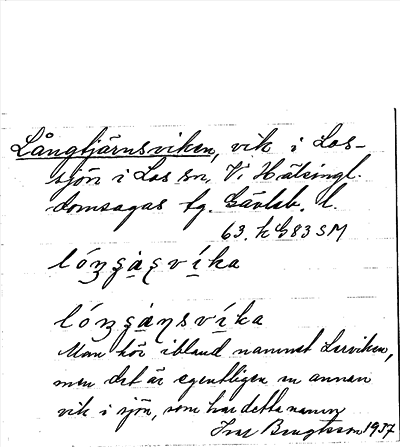 Långtjärnsviken, vik i Los-
sjön i Los sn, V. Hälsingl.
domsagas tg. Gävleb. l.
63. h G83 SM
lóŋgàsvíka
lóŋgáŋsvíka
Man hör ibland namnet Lerviken,
men det är egentligen en annan
vik i sjön, som har detta namn
Bengtsson 1937